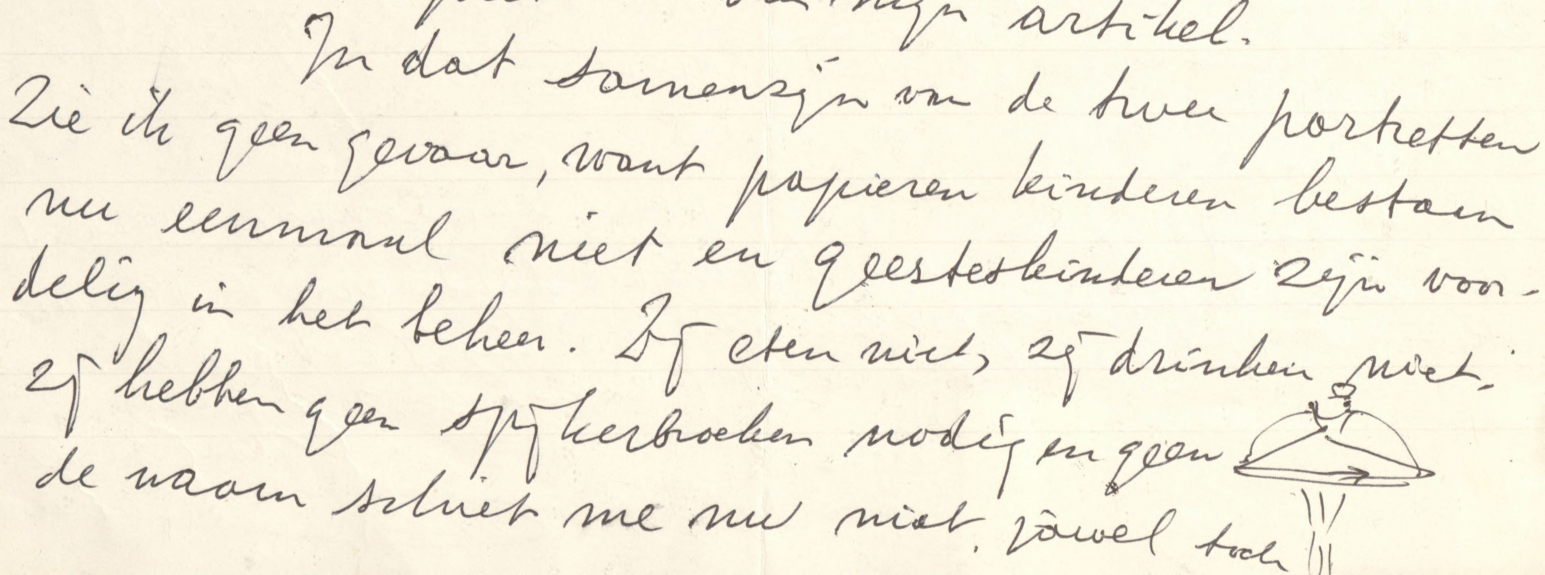 mijn artikel.
In dat samenzijn van de twee portretten
Zie ik geen gevaar, want papieren kinderen bestaan
nu eenmaal niet en geesteskinderen zijn voor-
delig in het beheer. Zij eten niet, zij drinken niet,
zij hebben geen spijkerbroeken nodig en geen
de naam schiet me nu niet, jawel toch